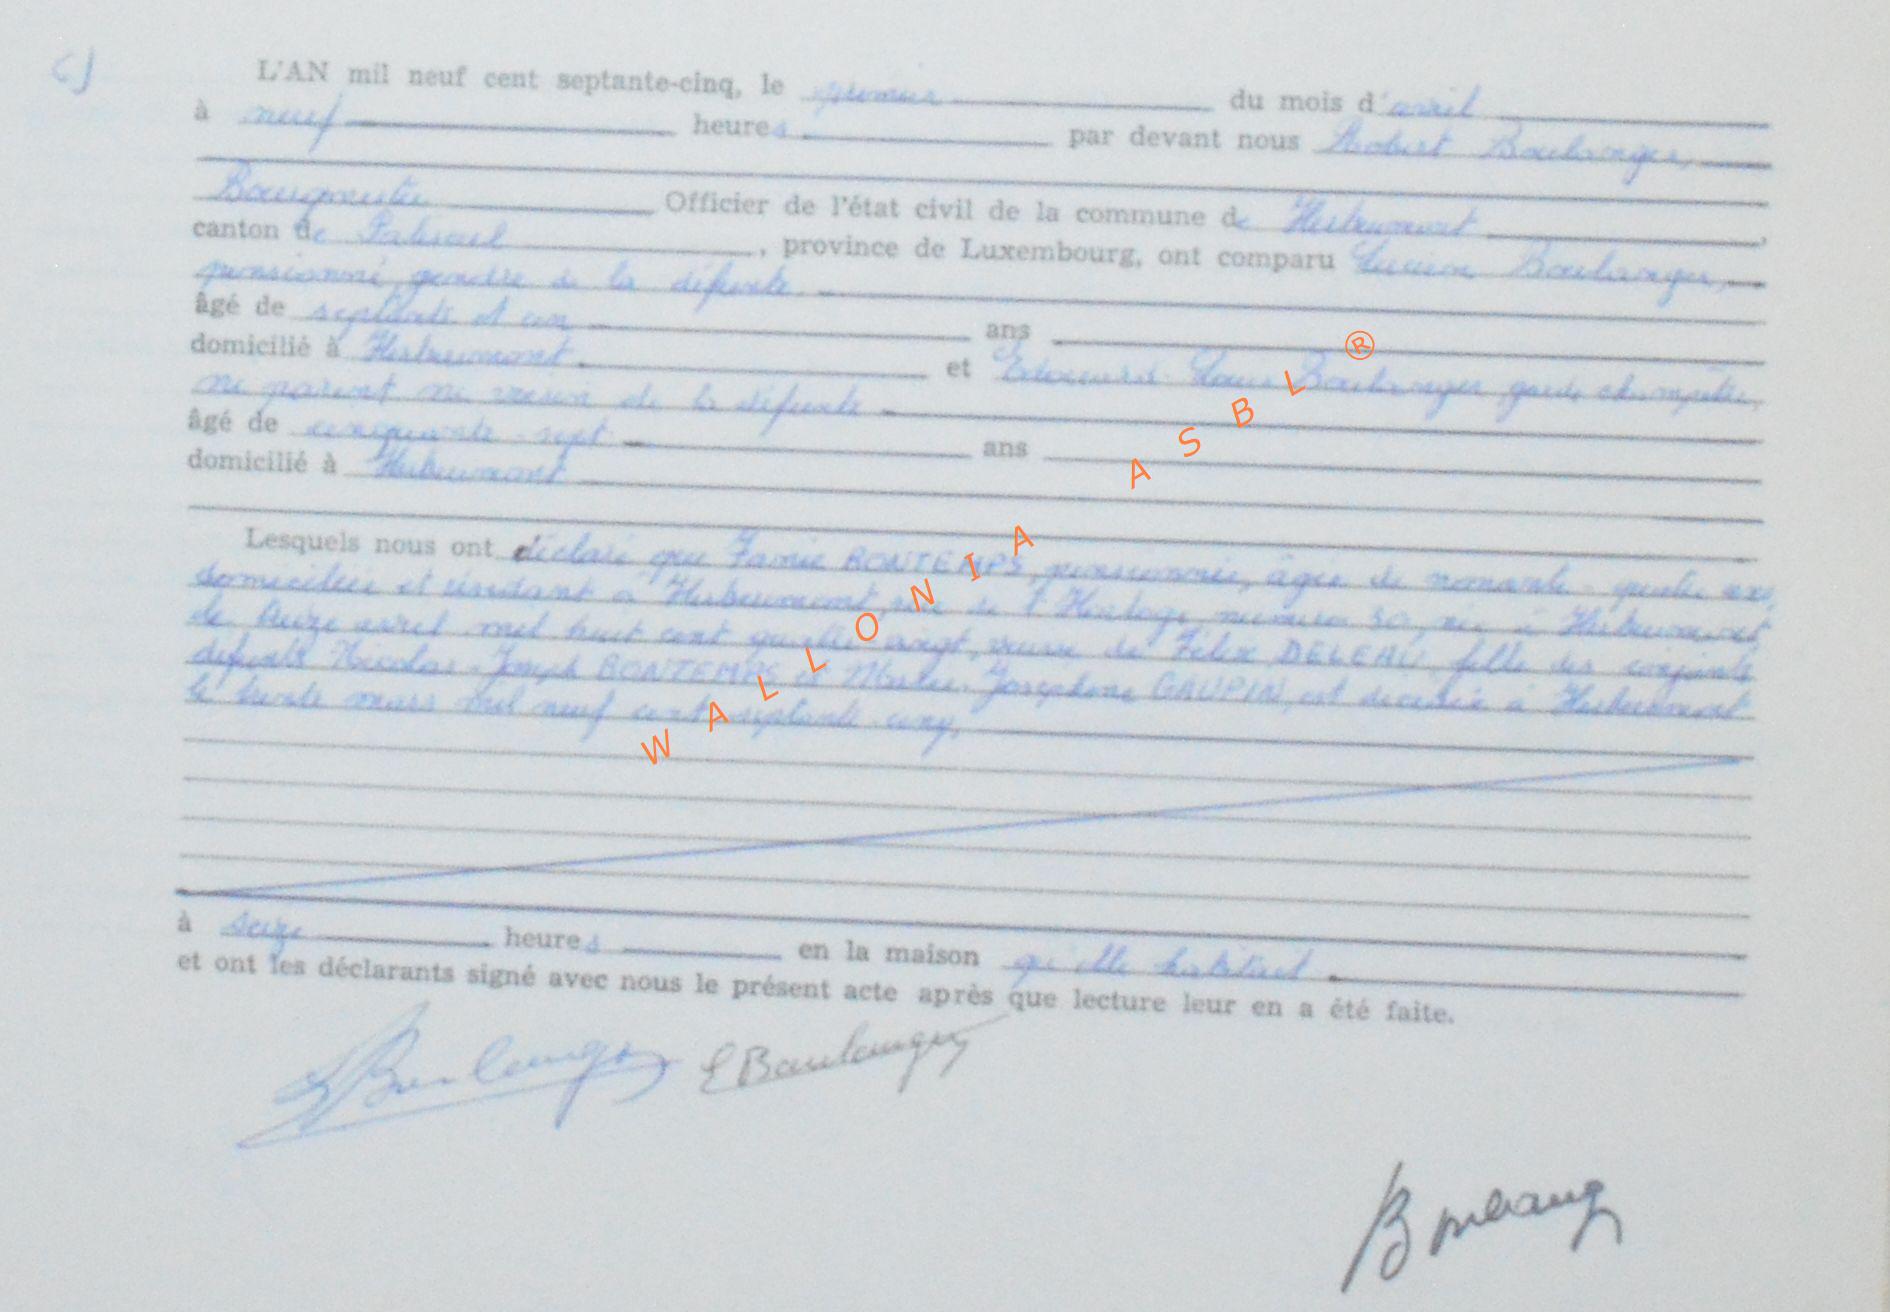 c)
L'AN mil neuf cent septante-cinq, le premier du mois d'avril
à neuf heures par devant nous Robert Boulanger,
Bourgmestre Officier de l'état civil de la commune de Herbeumont,
canton de Paliseul, province de Luxembourg, ont comparu Lucien Boulanger,
pensionné, gendre de la défunte
âgé de septante et un ans
domicilié à Herbeumont et Edouard-Louis Boulanger, garde champêtre,
ni parent ni voisin de la défunte
âgé de cinquante-sept ans
domicilié à Herbeumont
Lesquels nous ont déclaré que Fanie BONTEMPS, pensionnée, âgée de nonante-quatre ans,
domiciliée et résidant à Herbeumont, rue de l' numéro 30, née à Herbeumont
le avril mil huit cent quatre-vingt, veuve de Félix DELEAU, fille des conjoints
défunts Nicolas-Joseph BONTEMPS et Marie-Joséphine GAUPIN, est décédée à Herbeumont
le trente mars mil neuf cent septante-cinq,
à seize heures en la maison qu'elle habitait.
et ont les déclarants signé avec nous le présent acte après que lecture leur en a été faite.
L Boulanger E Boulanger
Boulanger
WALLONIA ASBL ®